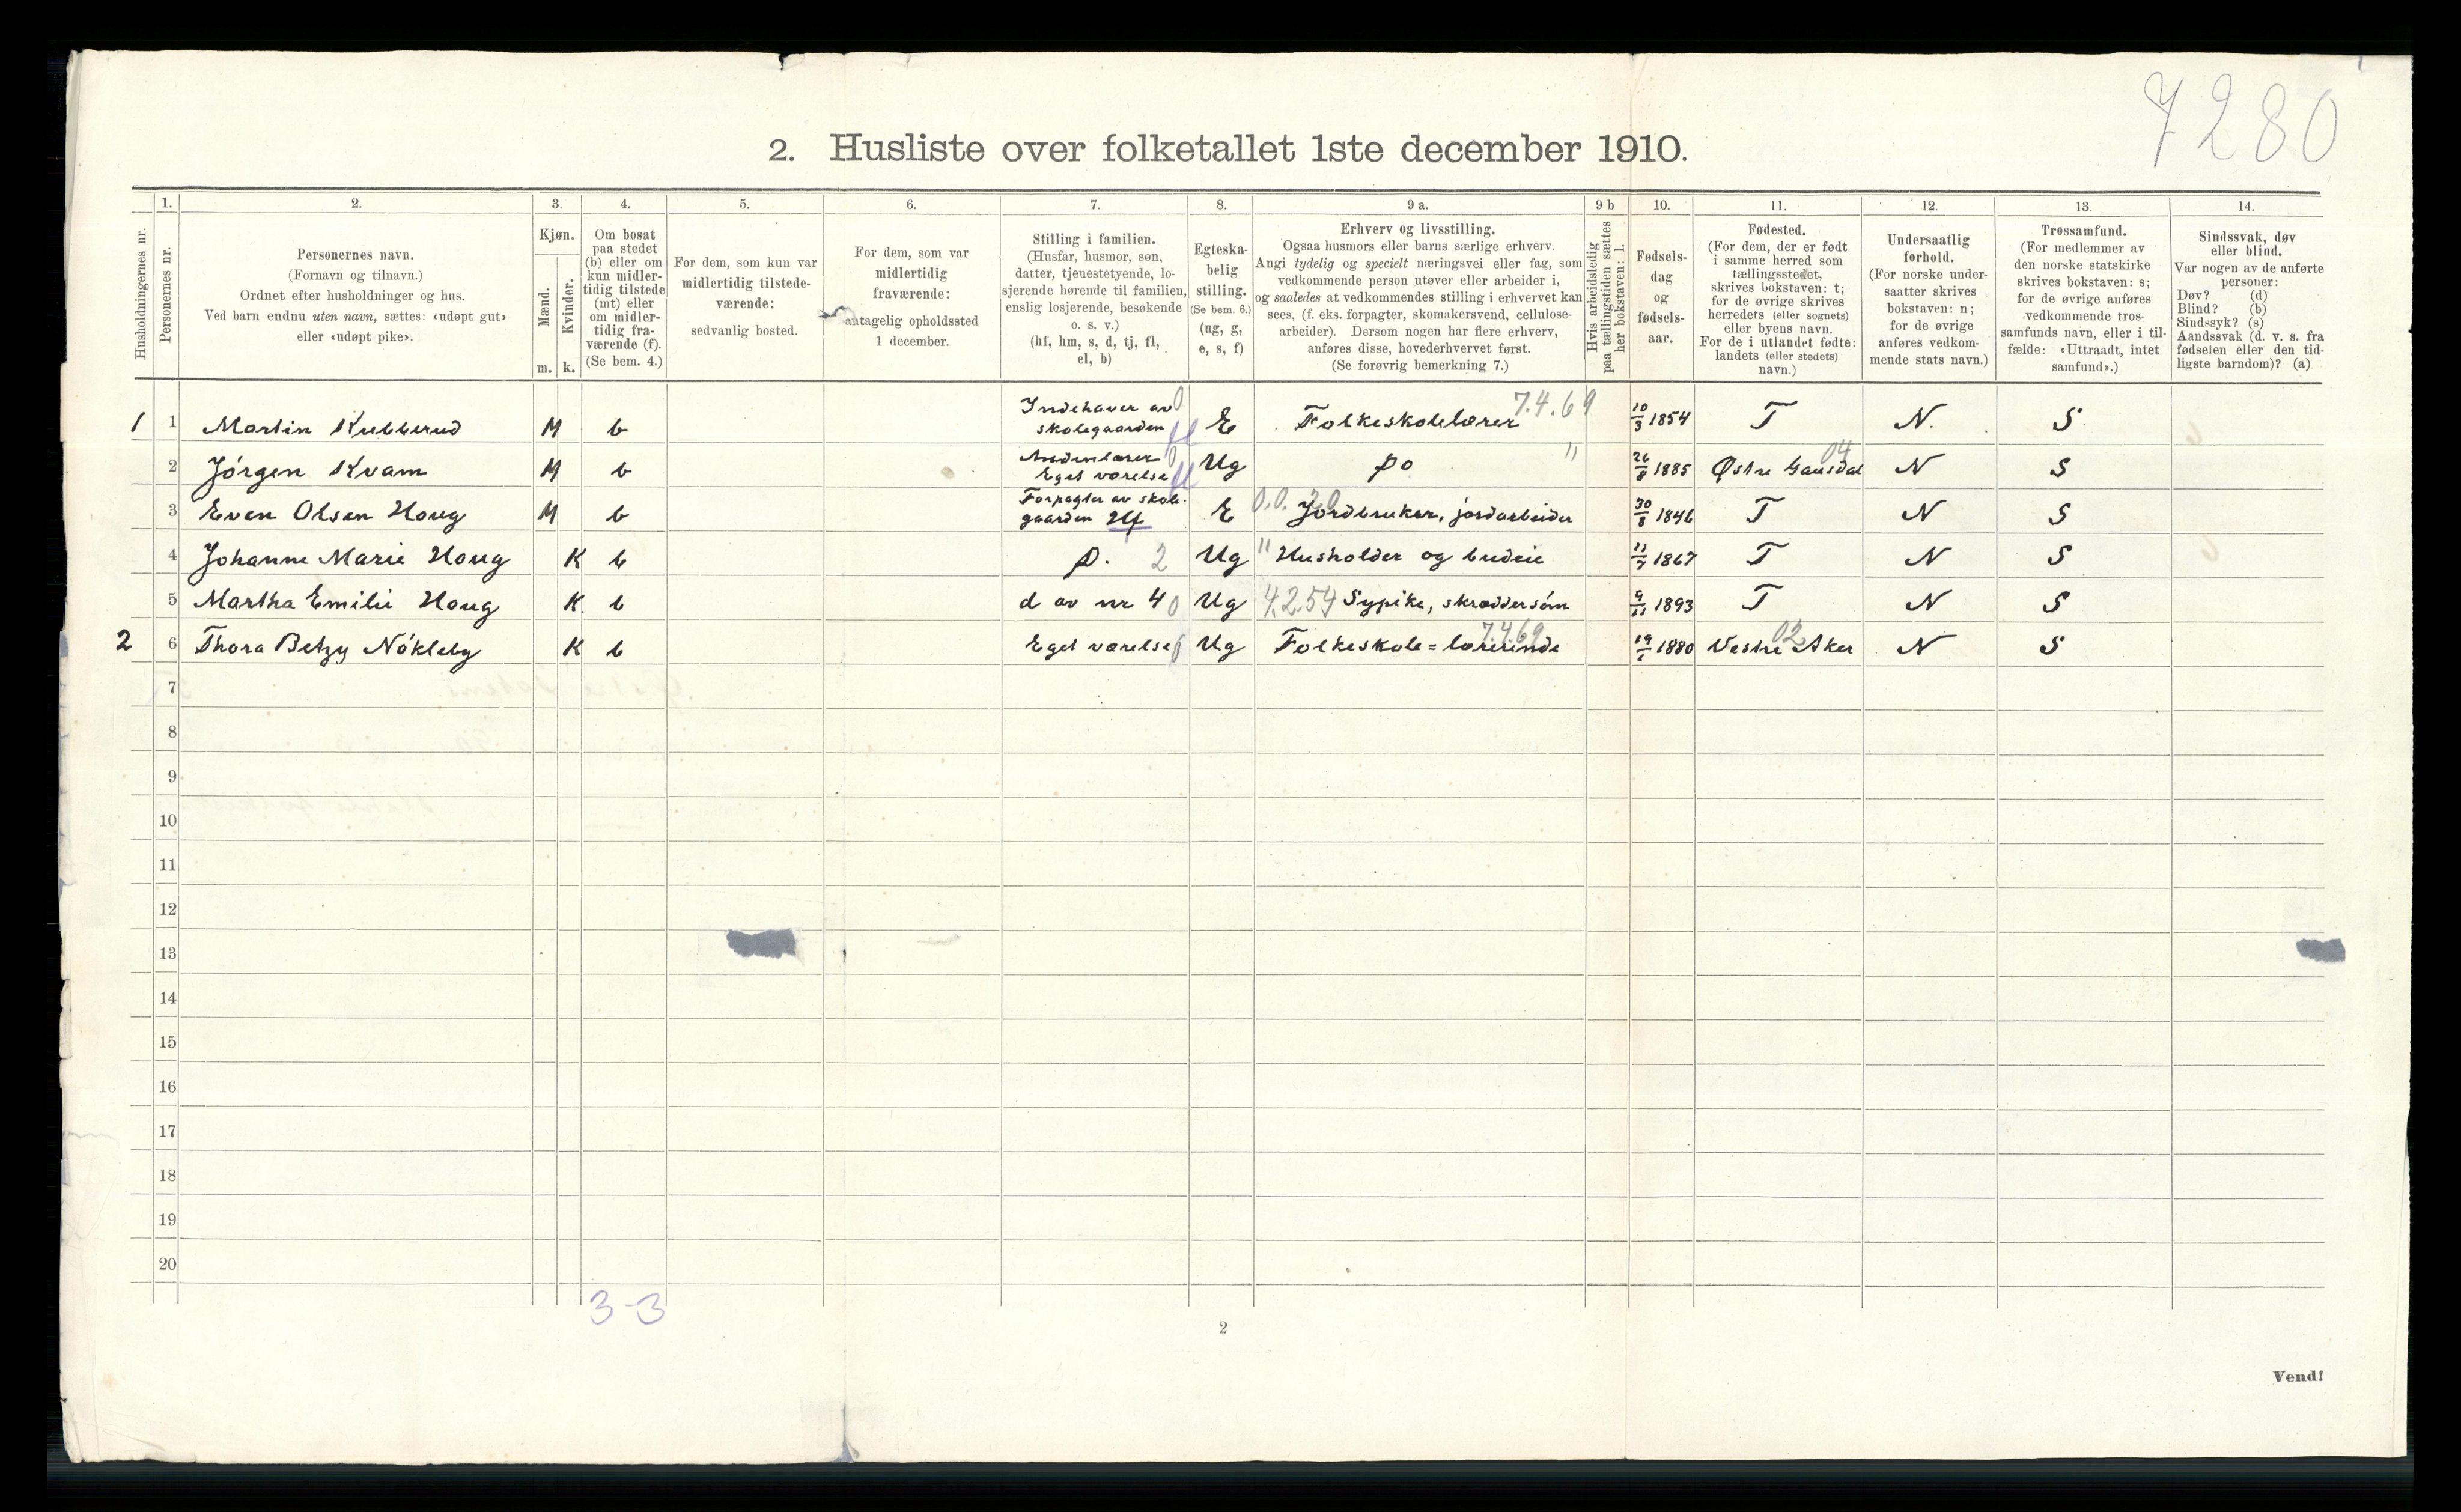 7280
2. Husliste over folketallet 1ste december 1910.
Husholdningernes nr.
1.
Personernes nr.
2.
Personernes navn.
(Fornavn og tilnavn.)
Ordnet efter husholdninger og hus.
Ved barn endnu uten navn, sættes: «udøpt gut»
eller «udøpt pike».
3.
Kjøn.
Mænd.
Kvinder.
m. k.
4.
Om bosat
paa stedet
(b) eller om
kun midler-
tidig tilstede
(mt) eller
om midler-
tidig fra-
værende (f).
(Se bem. 4.)
5.
For dem, som kun var
midlertidig tilstede-
værende:
sedvanlig bosted.
6.
For dem, som var
midlertidig
fraværende:
antagelig opholdssted
1 december.
7.
Stilling i familien.
(Husfar, husmor, søn,
datter, tjenestetyende, lo-
sjerende hørende til familien,
enslig losjerende, besøkende
o. s. v.)
(hf, hm, s, d, tj, fl,
el, b)
8.
Egteska-
belig
stilling.
(Se bem. 6.)
(ug, g,
e, s, f)
9 a.
Erhverv og livsstilling.
Ogsaa husmors eller barns særlige erhverv.
Angi tydelig og specielt næringsvei eller fag, som
vedkommende person utøver eller arbeider i,
og saaledes at vedkommendes stilling i erhvervet kan
sees, (f. eks. forpagter, skomakersvend, cellulose-
arbeider). Dersom nogen har flere erhverv,
anføres disse, hovederhvervet først.
(Se forøvrig bemerkning 7.)
9 b
Hvis arbeidsledig
paa tællingstiden sættes
her bokstaven: l.
10.
Fødsels-
dag
og
fødsels-
aar.
11.
Fødested.
(For dem, der er født
i samme herred som
tællingsstedet,
skrives bokstaven: t;
for de øvrige skrives
herredets (eller sognets)
eller byens navn.
For de i utlandet fødte:
landets (eller stedets)
navn.)
12.
Undersaatlig
forhold.
(For norske under-
saatter skrives
bokstaven: n;
for de øvrige
anføres vedkom-
mende stats navn.)
13.
Trossamfund.
(For medlemmer av
den norske statskirke
skrives bokstaven: s;
for de øvrige anføres
vedkommende tros-
samfunds navn, eller i til-
fælde: «Uttraadt, intet
samfund».)
14.
Sindssvak, døv
eller blind.
Var nogen av de anførte
personer:
Døv? (d)
Blind? (b)
Sindssyk? (s)
Aandssvak (d. v. s. fra
fødselen eller den tid-
ligste barndom)? (a)
1 1 Martin Kubberud M b Indehaver av skolegaarden 0 fl E Folkeskolelærer 7.4.69 10/3 1854 T N. S
2 Jórgen Kvam M b Andenlærer Eget værelse 0 fl Ug Do " 26/8 1885 Østre Gausdal 04 N S
3 Even Olsen Houg M b Forpagter av skole-gaarden Hf E 0.0.20 Jordbruker, jordarbeider 30/8 1846 T N S
4 Johanne Marie Houg K b D. 2 Ug " Husholder og budeie 11/7 1867 T N S
5 Martha Emilie Houg K. b d av nr 4 0 Ug 4.2.54 Sypike, skræddersóm 9/11 1893 T N S
2 6 Thora Betzy Nókleby K b Eget værelse 0 Ug Folkeskole=lærerinde 7.4.69 19/1 1880 Vestre Aker 02 N S
7
8
9
10
11
12
13
14
15
16
17
18
19
20
3-3
2
Vend!